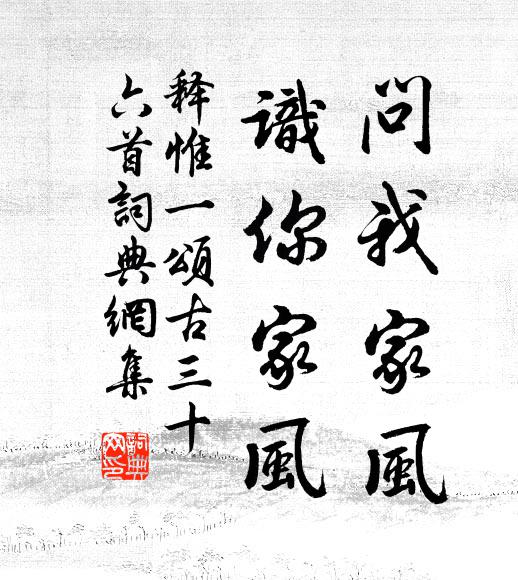 問我家風
識你家風
释惟一頌古三十
六首詞典網集
詞典网印